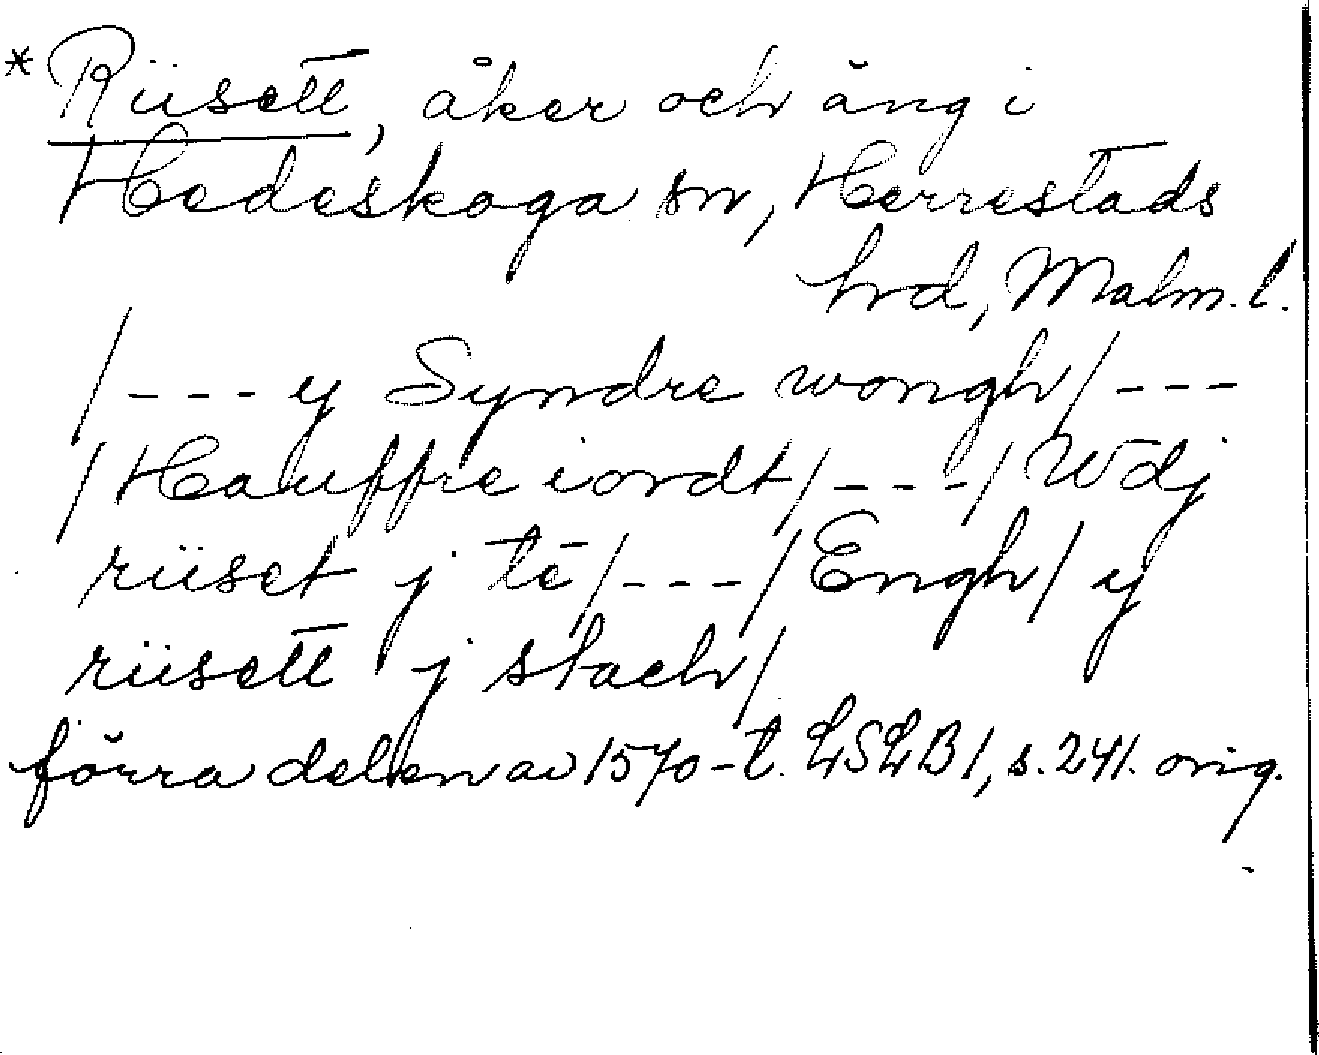 * Riisett, åker och äng i
Hedeskoga sn, Herrestads
hrd, Malm. l.
/--- y Syndre wongh/---
/Hauffre iordt/---/Wdj
riiset j te/---/Engh/ y
riisett j stach/
förra delen av 1570-t. LSLB1, s. 241. orig.